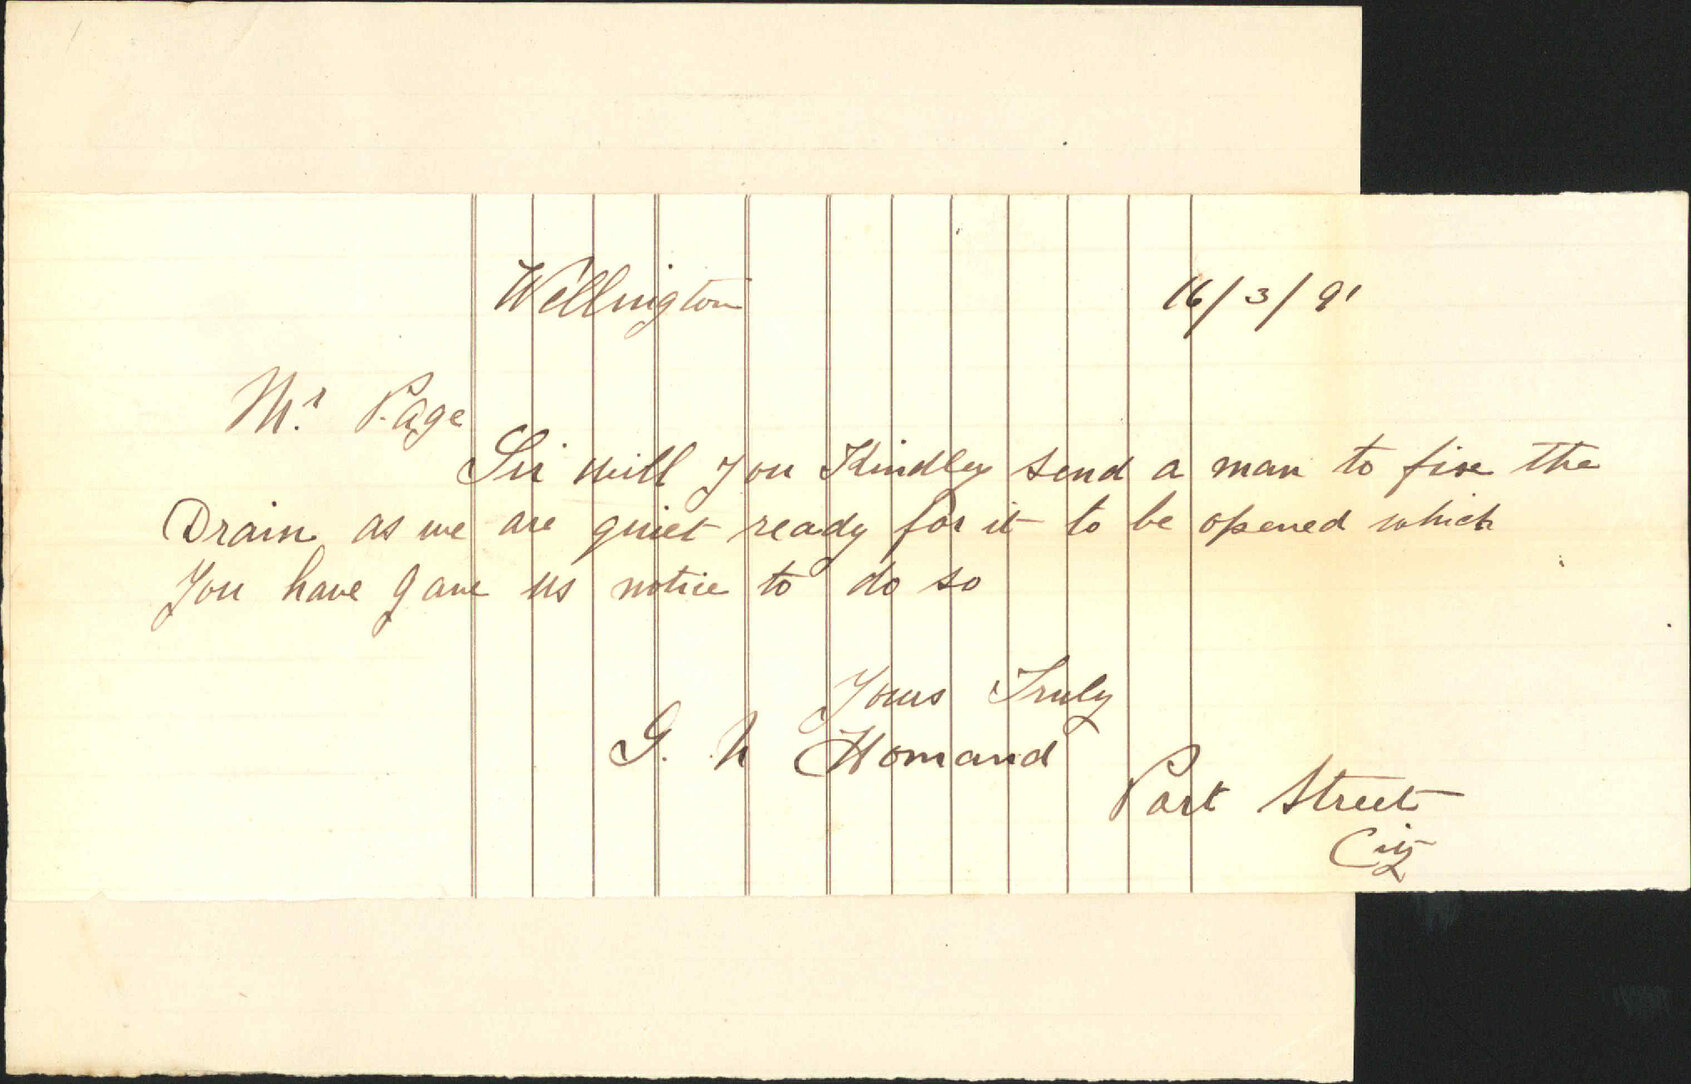 Wellington 16/3/91
Mr. Page
Sir will you Kindley send a man to fixe the
Drain as we are quiet ready for it to be opened which
You have gave us notice to do so
Yours Truly
G. N Homand
Park Street
City